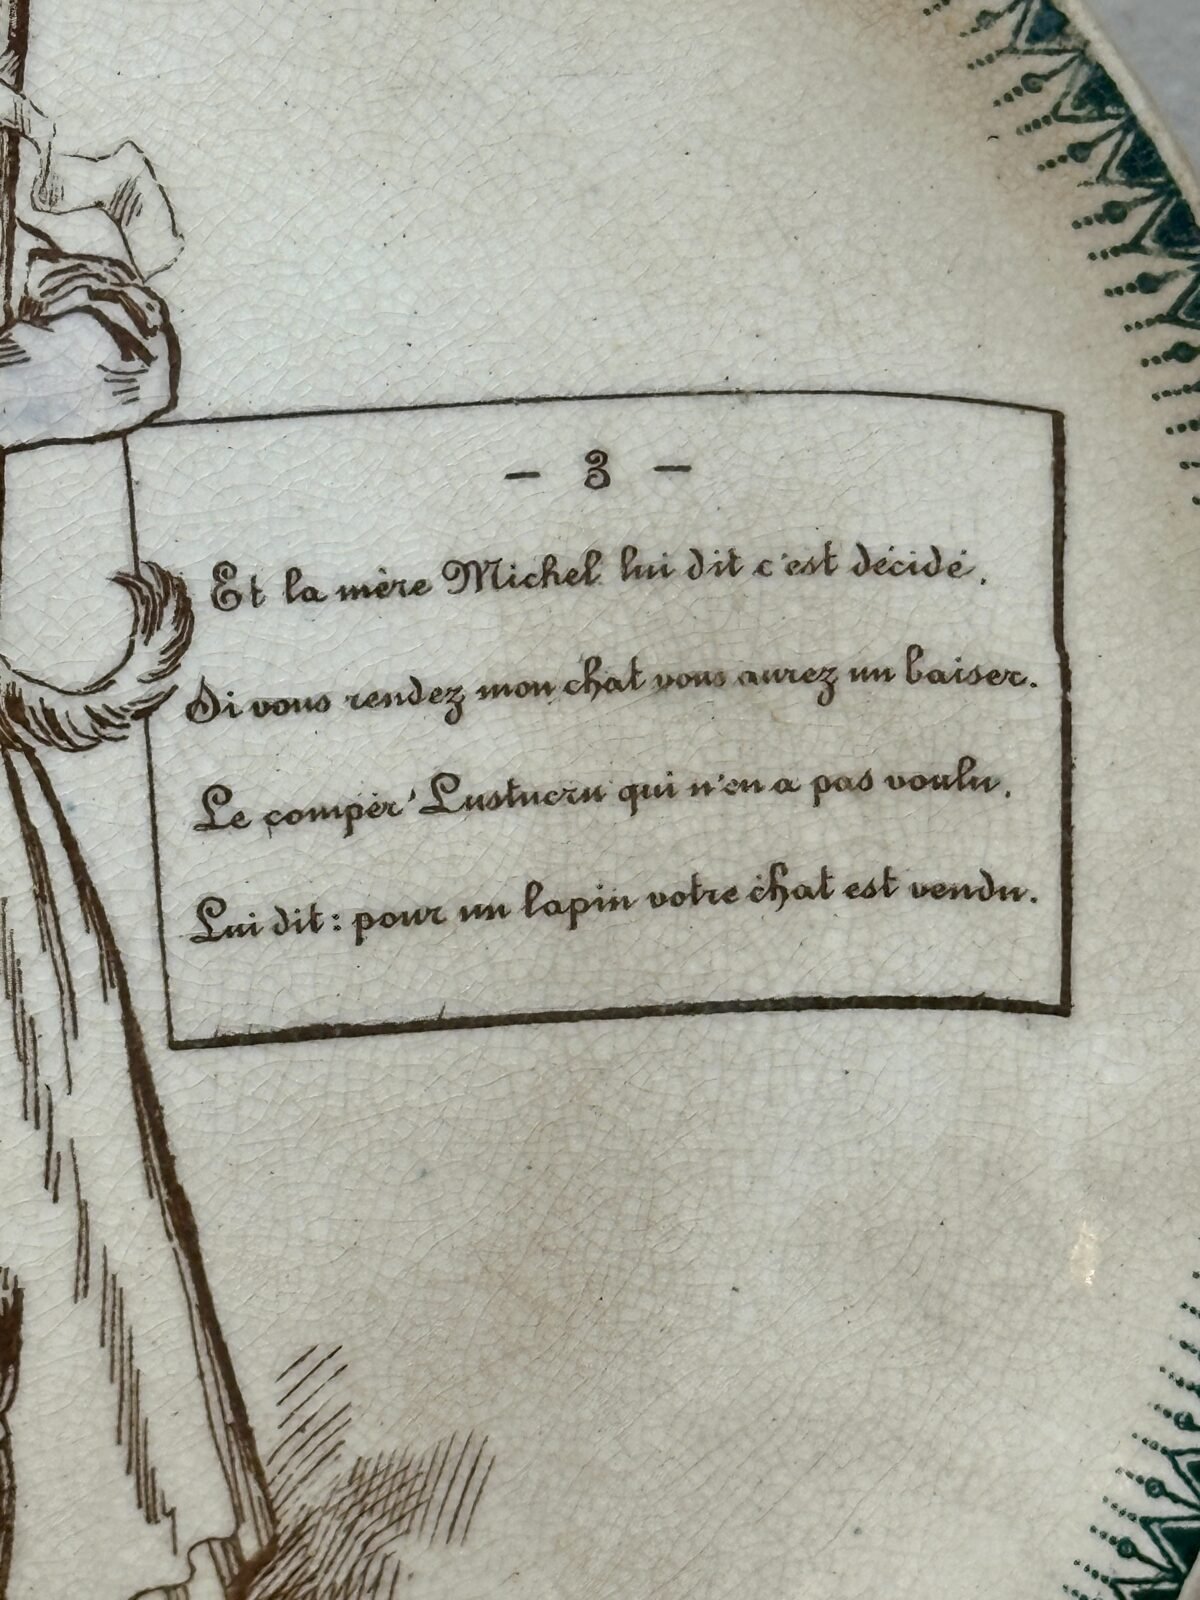 - 3 -
Et la mère Michel lui dit c'est décidé.
Si vous rendez mon chat vous aurez un baiser.
Le compèr' Lustucru qui n'en a pas voulu.
Lui dit : pour un lapin votre chat est vendu.